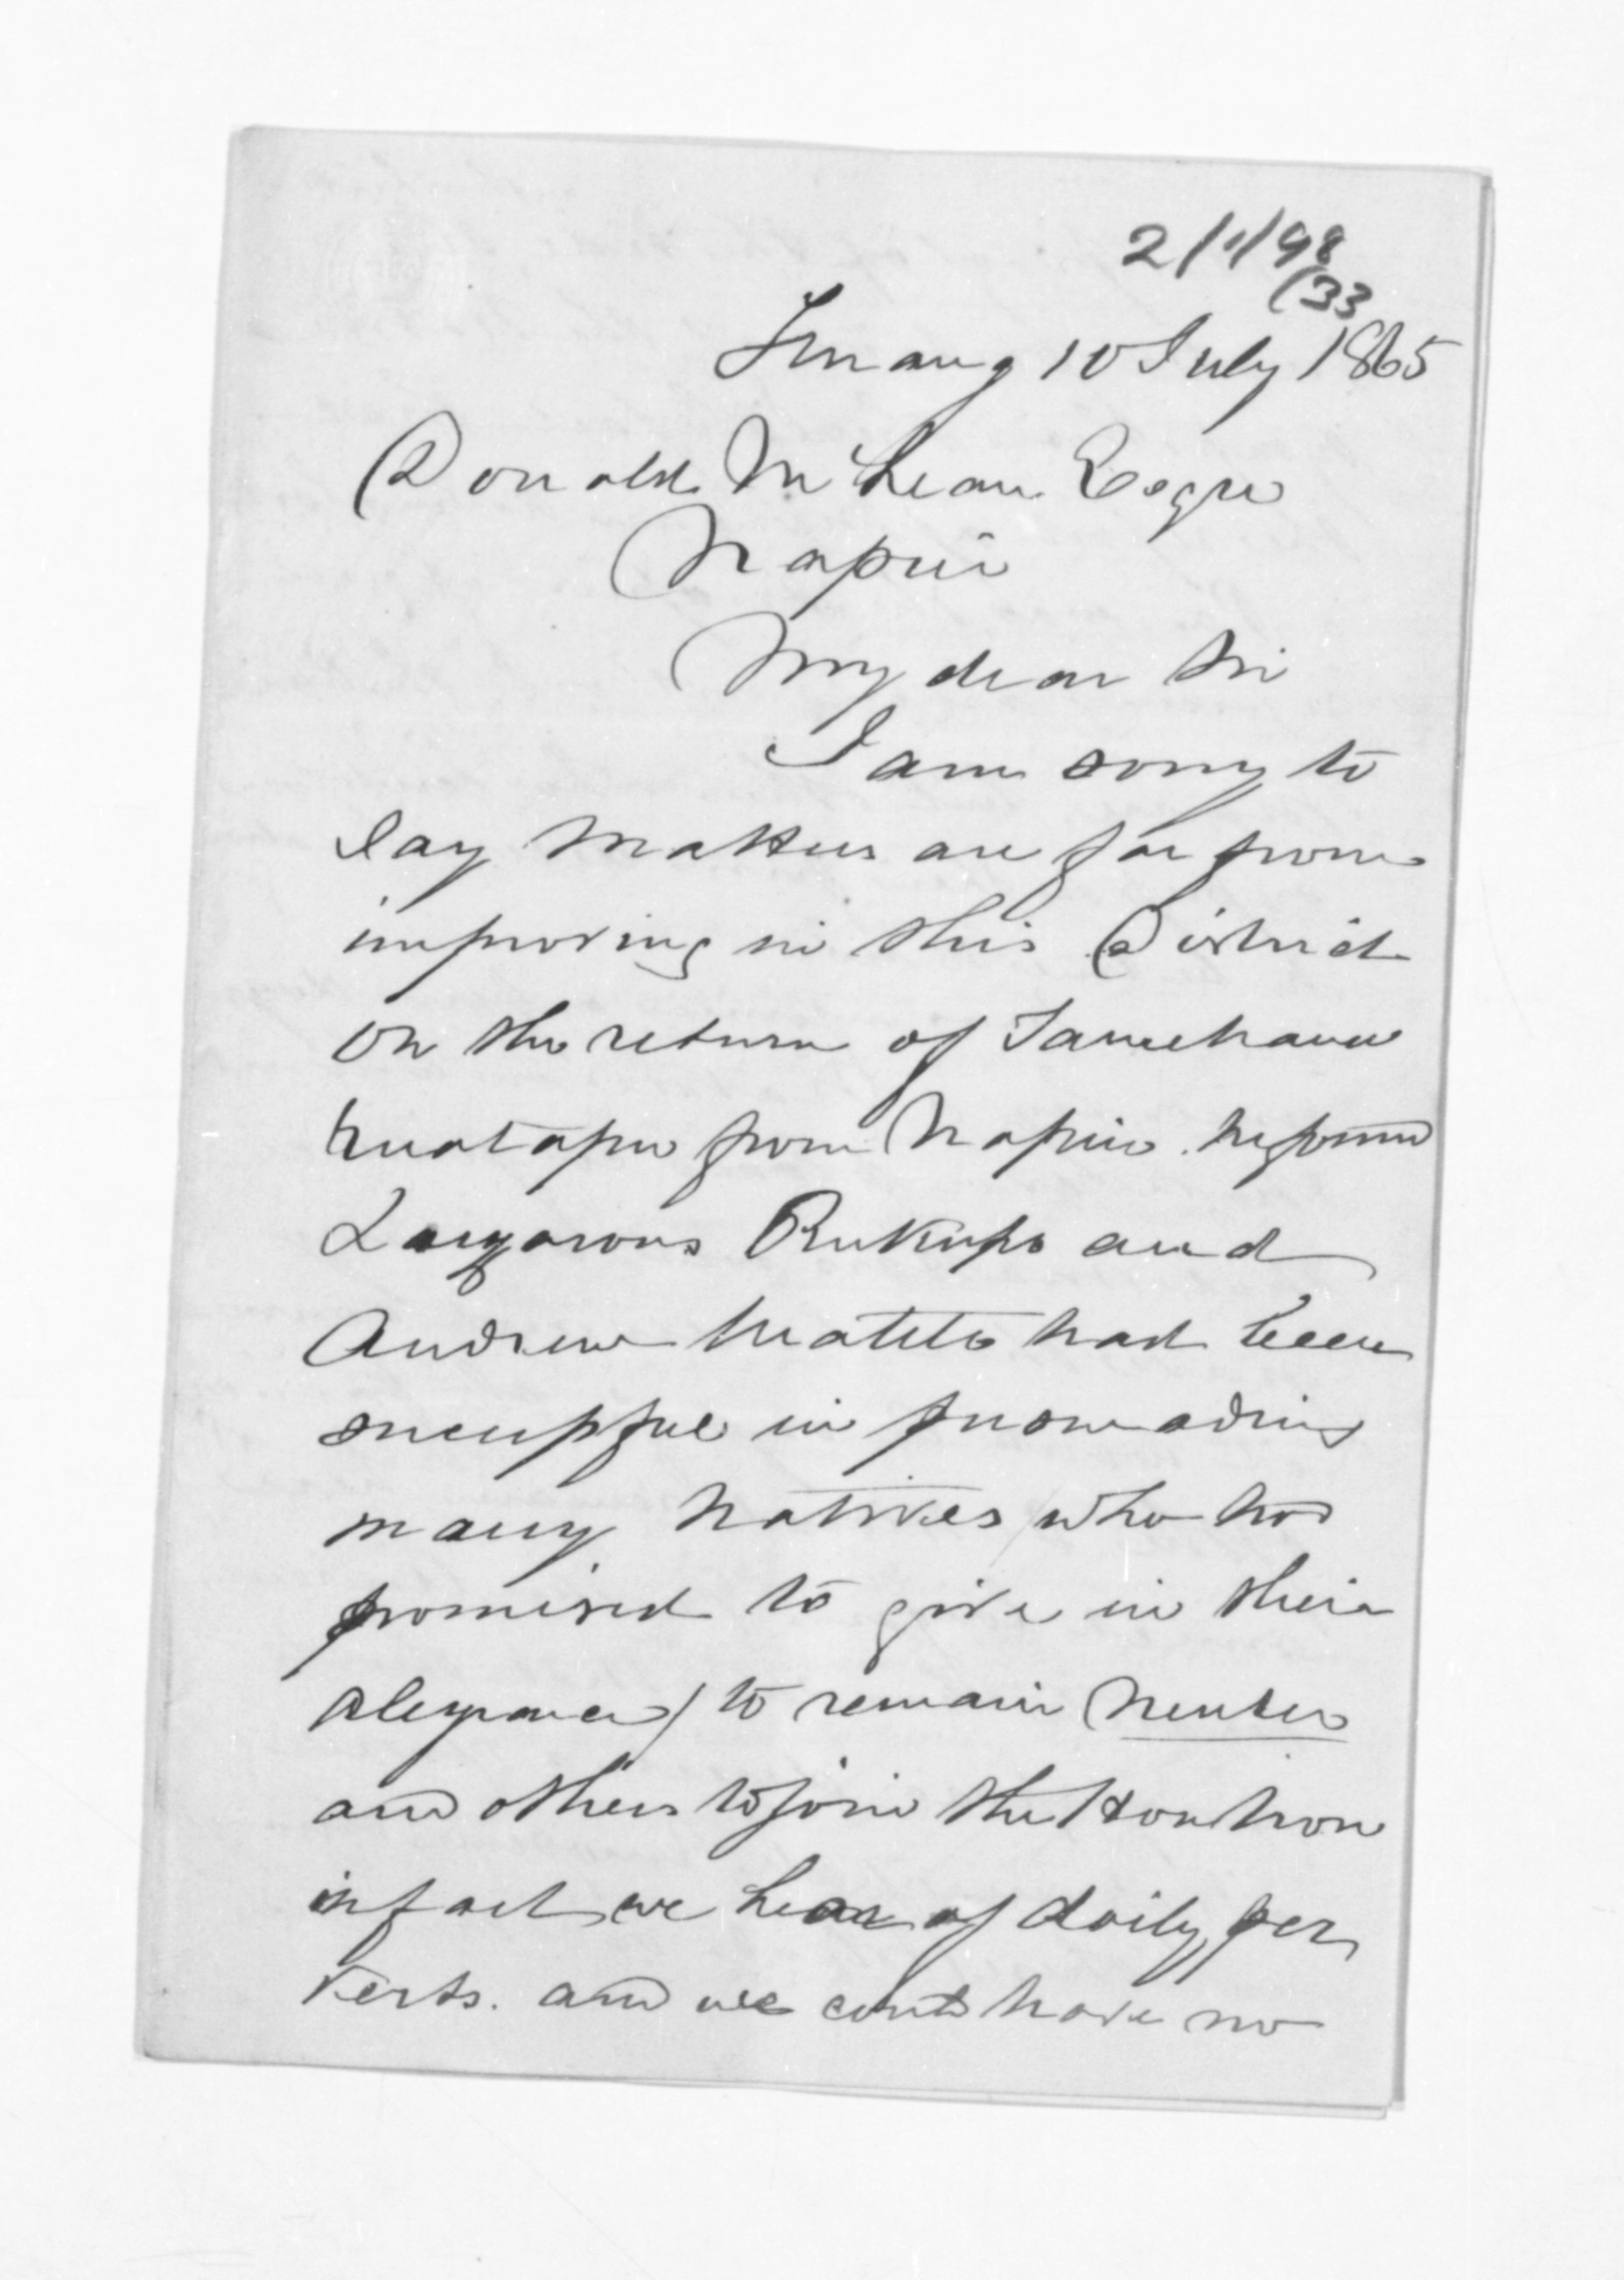 2/1/98
(33
Turanga 10 July 1865
Donald McLean Esqre
Napier
My dear Sir
I am sorry to
say matters are far from
improving in this District
on the return of Tamehana
Ruatapu from Napier he found
Lazarous Rukupo and
Andrew had been
successful in
many natives who had
promised to give in their
alegiance to remain neuter
and others to join the Hauhau
in fact we hear of daily per
verts. and we could have no